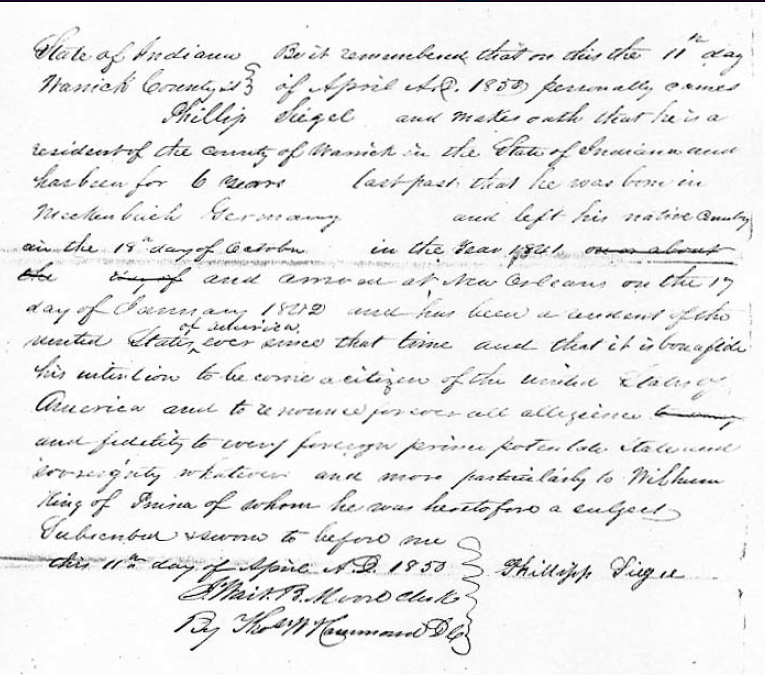 State of Indiana } Be it remembered that on this the 11th day
Warrick County ss } of April A.D. 1850 personally comes
Phillip Siegel and makes oath that he is a
resident of the county of Warrick in the State of Indiana and
has been for 6 years last past that he was born in
Meckenbach Germany and left his native Country
on the 18th day of October in the Year 1841 on or about
the day of and arrived at New Orleans on the 17
day of January 1842 and has been a resident of the
united States of america ever since that time and that it is bonafide
his intention to become a citizen of the united States of
America and to renounce forever all allegience to any
and fidelity to every foreign prince potentate State and
sovereignty whatever and more particularly to Wilhum
King of Prusia of whom he was heretofore a subject
Subscribed & sworn to before me
this 11th day of April A.D. 1850 } Phillipp Siegel
B. Moore Clerk
By Thos W Hammond D C